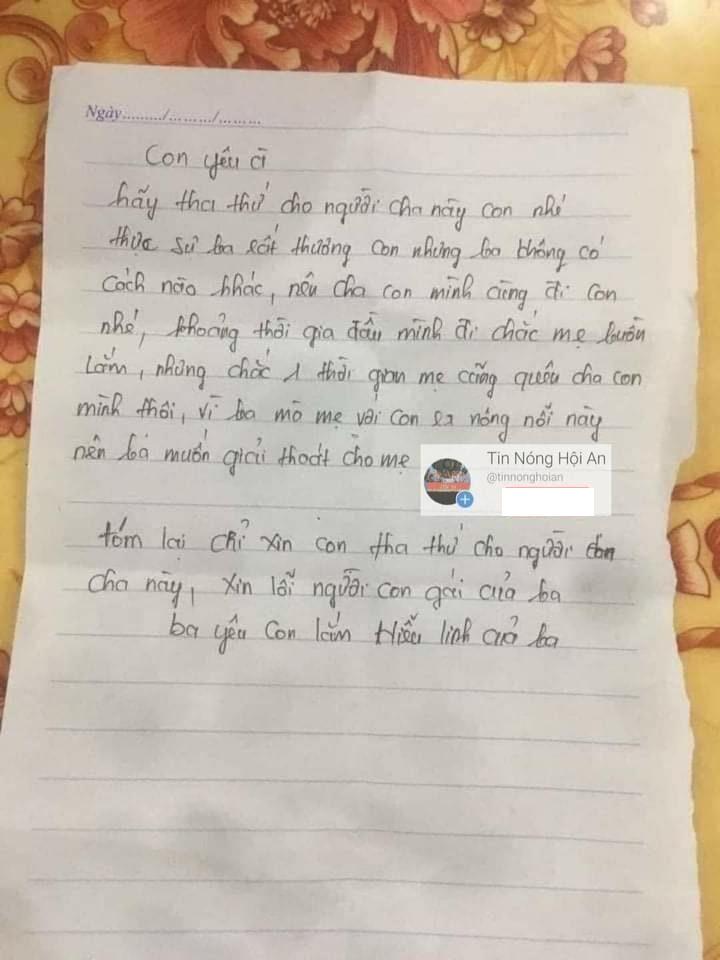 Ngày........./........./.........
Con yêu à
hãy tha thứ cho người cha này con nhé
thực sự ba rất thương con nhưng ba không có
cách nào khác, nên cha con mình cùng đi con
nhé, khoảng thời gia đầu mình đi chắc mẹ buồn
lắm, nhưng chắc 1 thời gian mẹ cũng quên cha con
mình thôi, vì ba mà mẹ với con ra nông nổi này
nên ba muốn giải thoát cho mẹ
Tin Nóng Hội An
@tinnonghoian
tóm lại chỉ xin con tha thứ cho người
cha này, xin lỗi người con gái của ba
ba yêu con lắm Hiếu linh của ba